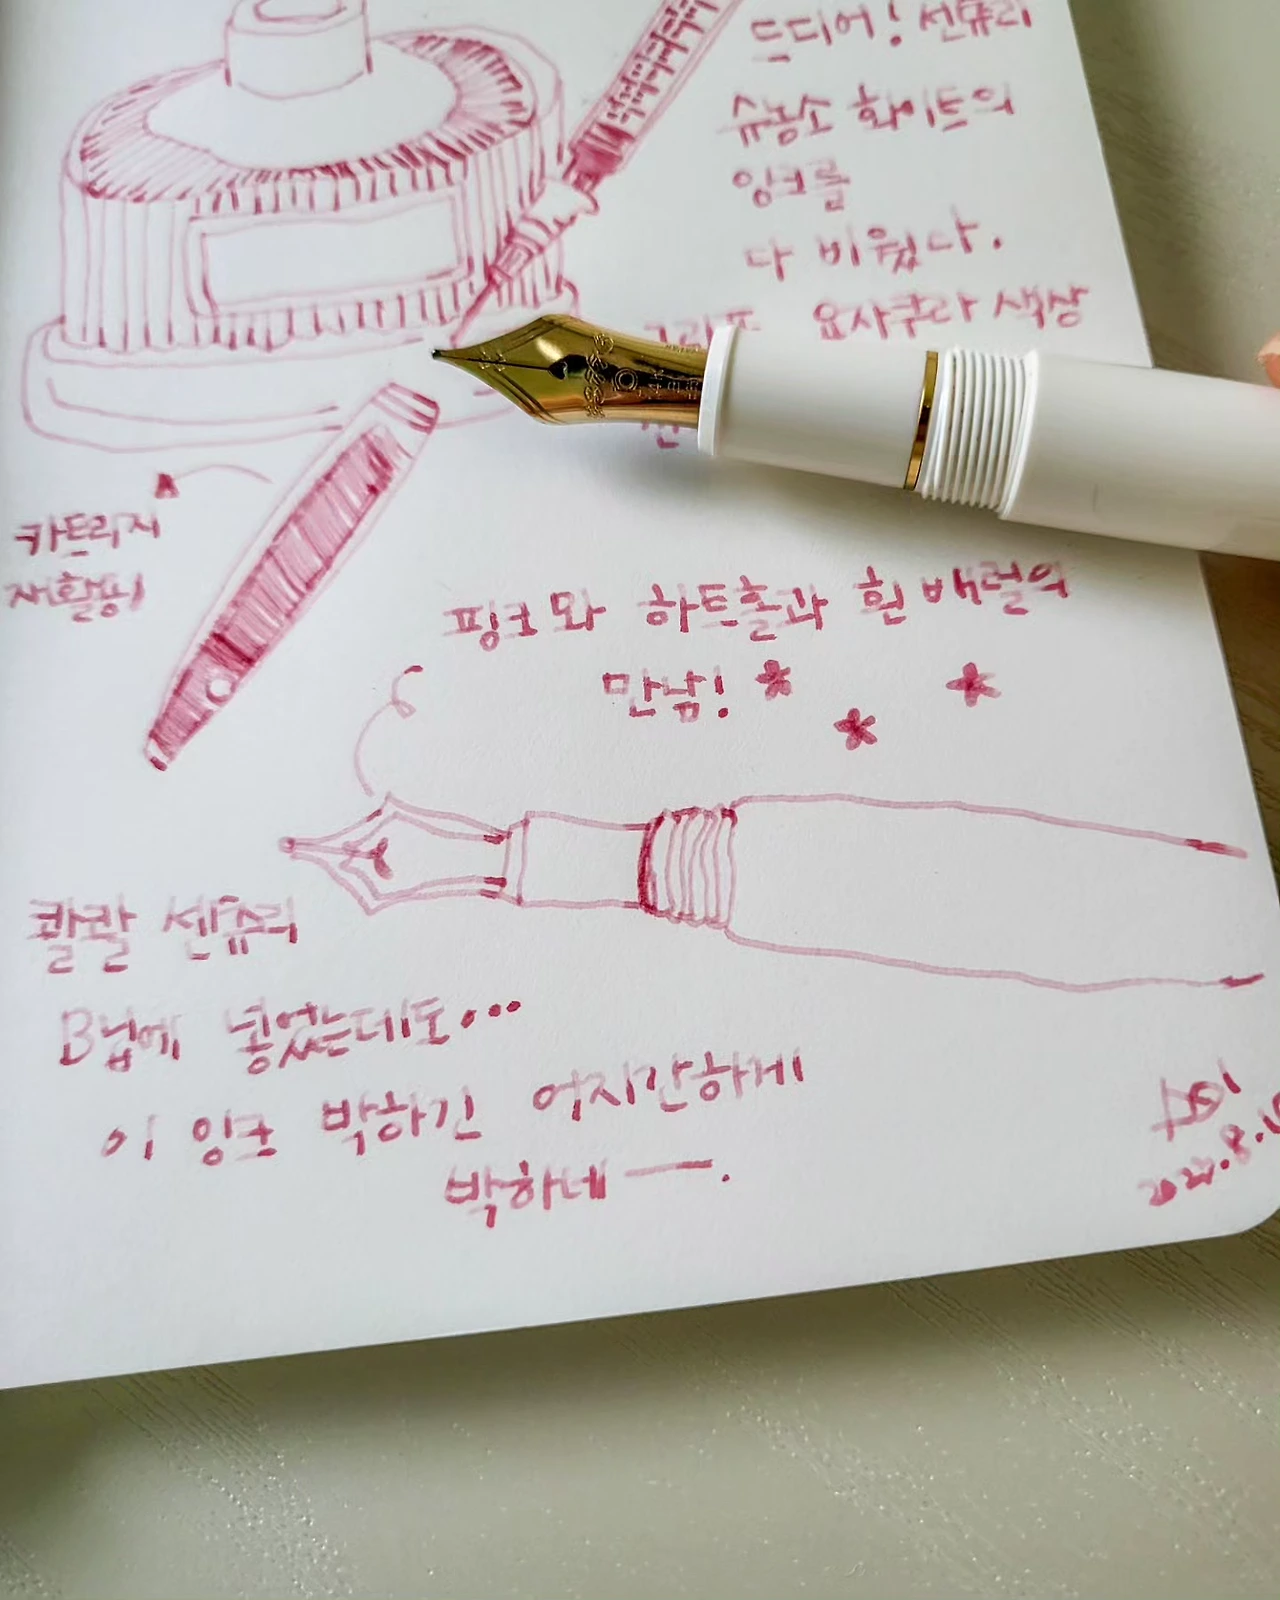 드디어! 센츄리
슈농소 화이트의
잉크를
다 비웠다.
요사쿠라 색상
카트리지
재활용!
핑크와 하트홀과 흰 배럴의
만남!
콸콸 센츄리
B닙에 넣었는데도...
이 잉크 박하긴 어지간하게
박하네 —.